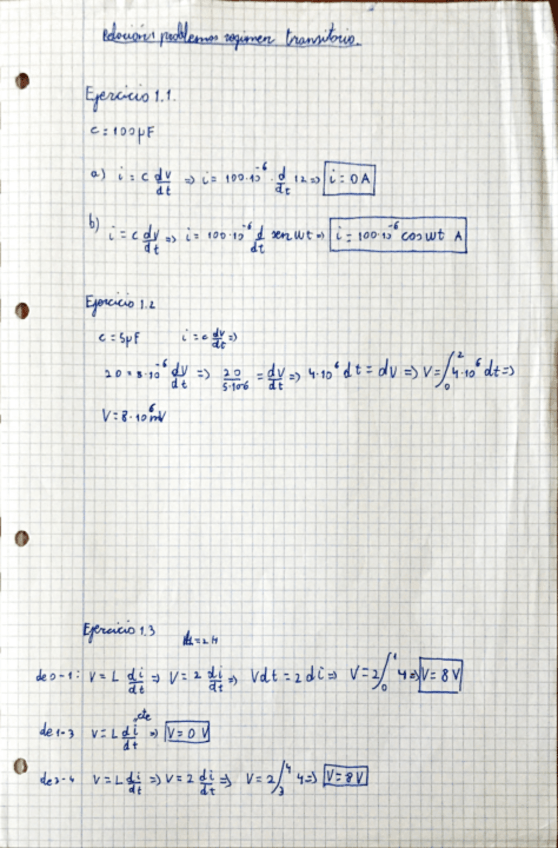 Relación problemas regimen transitorio.
Ejercicio 1.1.
C = 100 μF
a) i = c dv/dt => i = 100·10^-6 · d/dt 12 => i = 0 A
b) i = c dv/dt => i = 100·10^-6 d/dt sen wt => i = 100·10^-6 cos wt A
Ejercicio 1.2
c = 5 μF i = c dv/dt =>
20 = 5·10^-6 dv/dt => 20/5·10^-6 = dv/dt => 4·10^6 dt = dv => V = ∫_0^2 4·10^6 dt =>
V = 8·10^6 mV
Ejercicio 1.3 L = 2 H
de 0-1: V = L di/dt => V = 2 di/dt => V dt = 2 di => V = 2 ∫_0^1 4 => V = 8 V
de 1-3 V = L di/dt cte => V = 0 V
de 3-4 V = L di/dt => V = 2 di/dt => V = 2 ∫_3^4 4 => V = 8 V